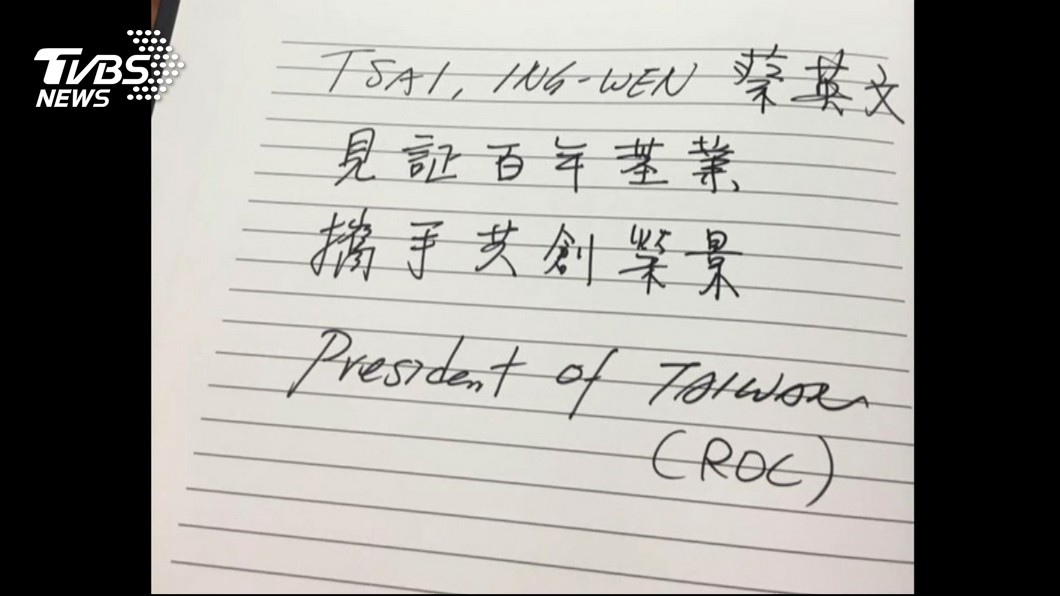 TVBS
NEWS
TSAI, ING-WEN 蔡英文
見証百年基業
攜手共創榮景
President of TAIWAN
(ROC)